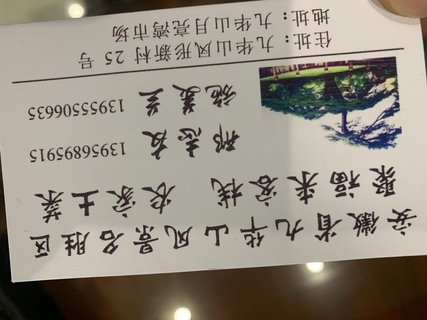 安徽省九华山风景名胜区
聚福来客栈 农家土菜
郝志友 13956895915
施美兰 13955506635
住址：九华山凤形新村 25 号
地址：九华山月亮湾市场